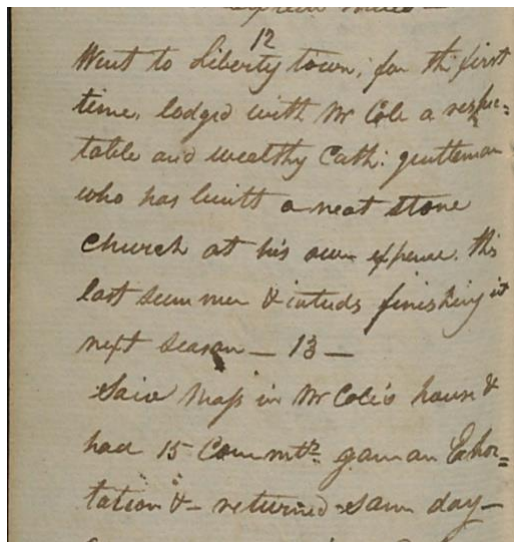 12
Went to Liberty town, for the first
time, lodgd with Mr Cole a respec=
table and wealthy Cath: gentleman
who has built a neat stone
church at his own expense. this
last summer & intends finishing it
next season — 13 —
Said Mass in Mr Cole's house &
had 15 Commts. gave an Exhor=
tation & — returned same day —